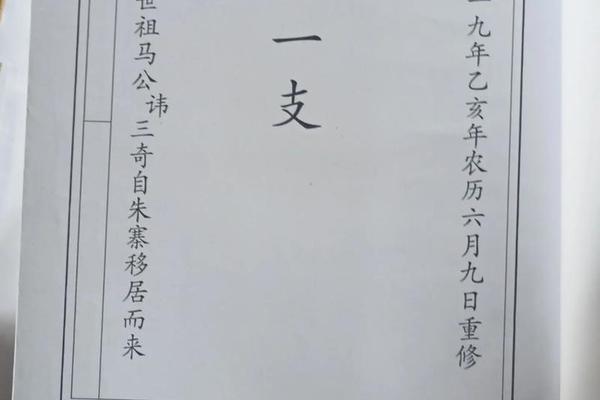 九年乙亥年农历六月九日重修
一支
世祖马公讳三奇自朱寨移居而来